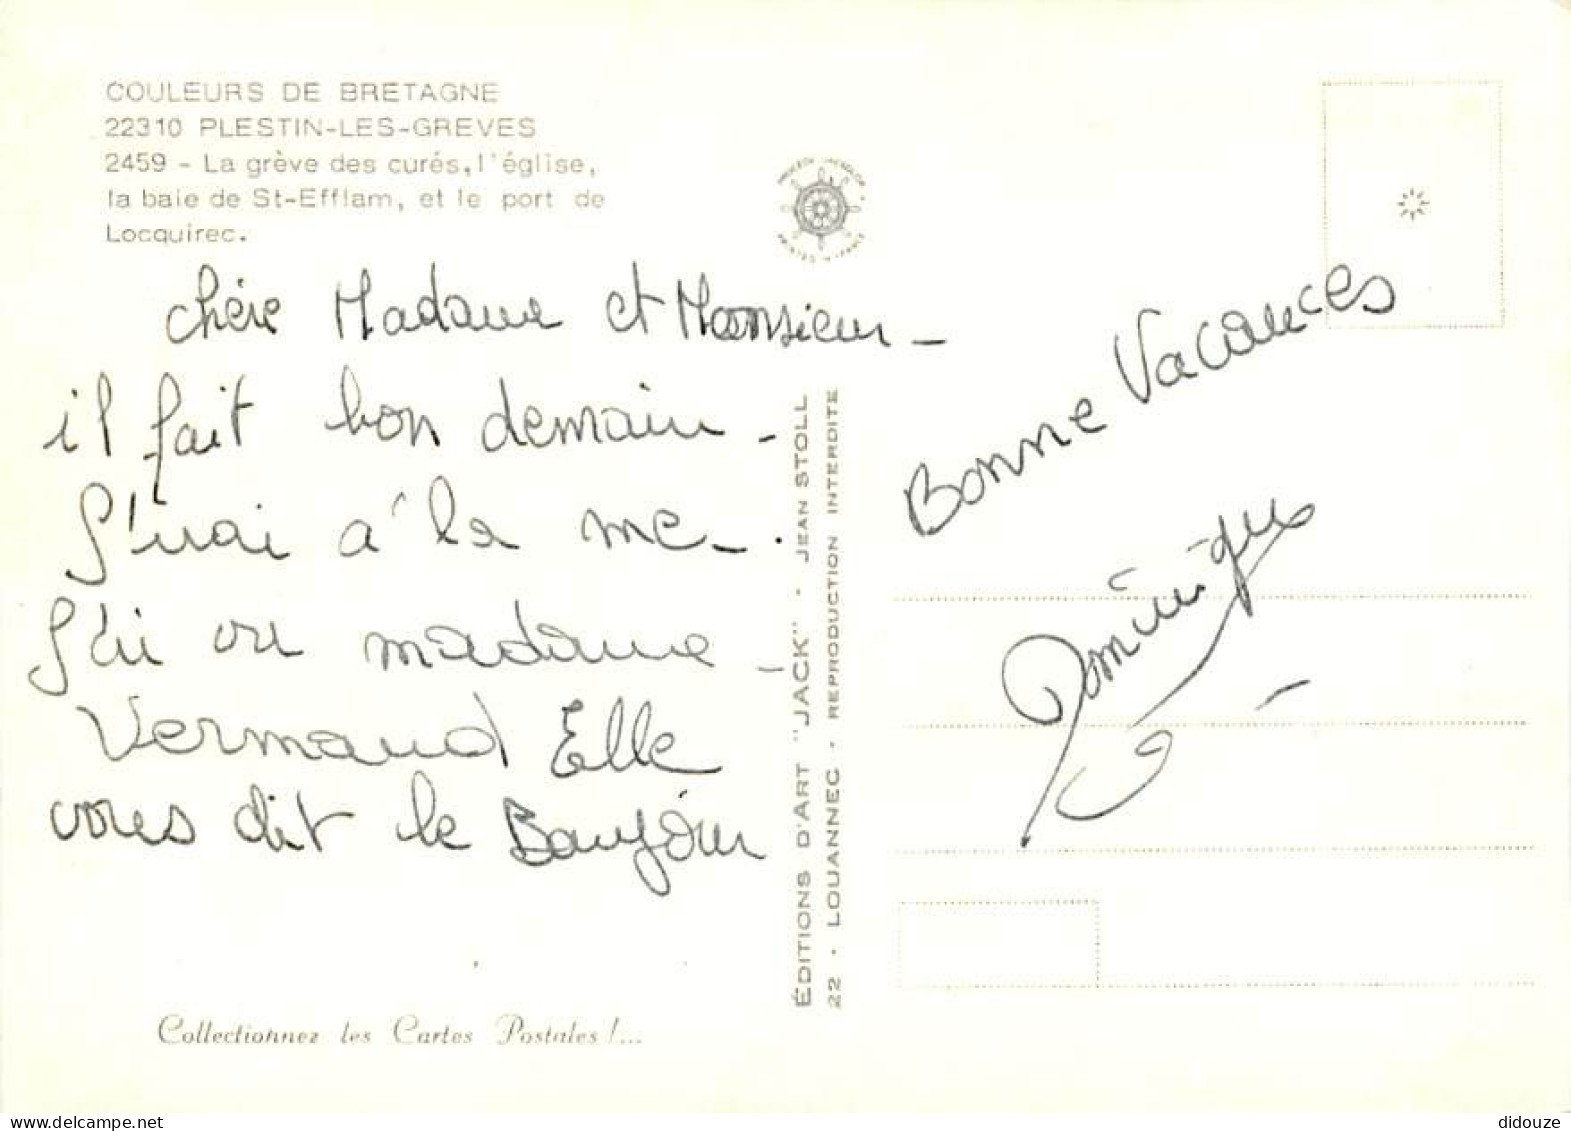 COULEURS DE BRETAGNE
22310 PLESTIN-LES-GREVES
2459 - La grève des curés, l'église,
la baie de St-Efflam, et le port de
Locquirec.
chère Madame et Monsieur -
il fait bon demain -
J'irai à la me -.
J'ai vu madame -
Vermaud Elle
vous dit le Bonjour
Collectionnez les Cartes Postales !...
ÉDITIONS D'ART "JACK" - JEAN STOLL
22 - LOUANNEC - REPRODUCTION INTERDITE
Bonne Vacances
Dominique
didouze